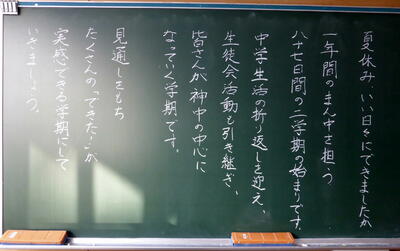 夏休み、いい日々にできましたか
一年間のまん中を担う
八十七日間の二学期の始まりです。
中学生活の折り返しを迎え、
生徒会活動も引き継ぎ、
皆さんが神中の中心に
なっていく学期です。
見通しをもち
たくさんの「できた」が
実感できる学期にして
いきましょう。